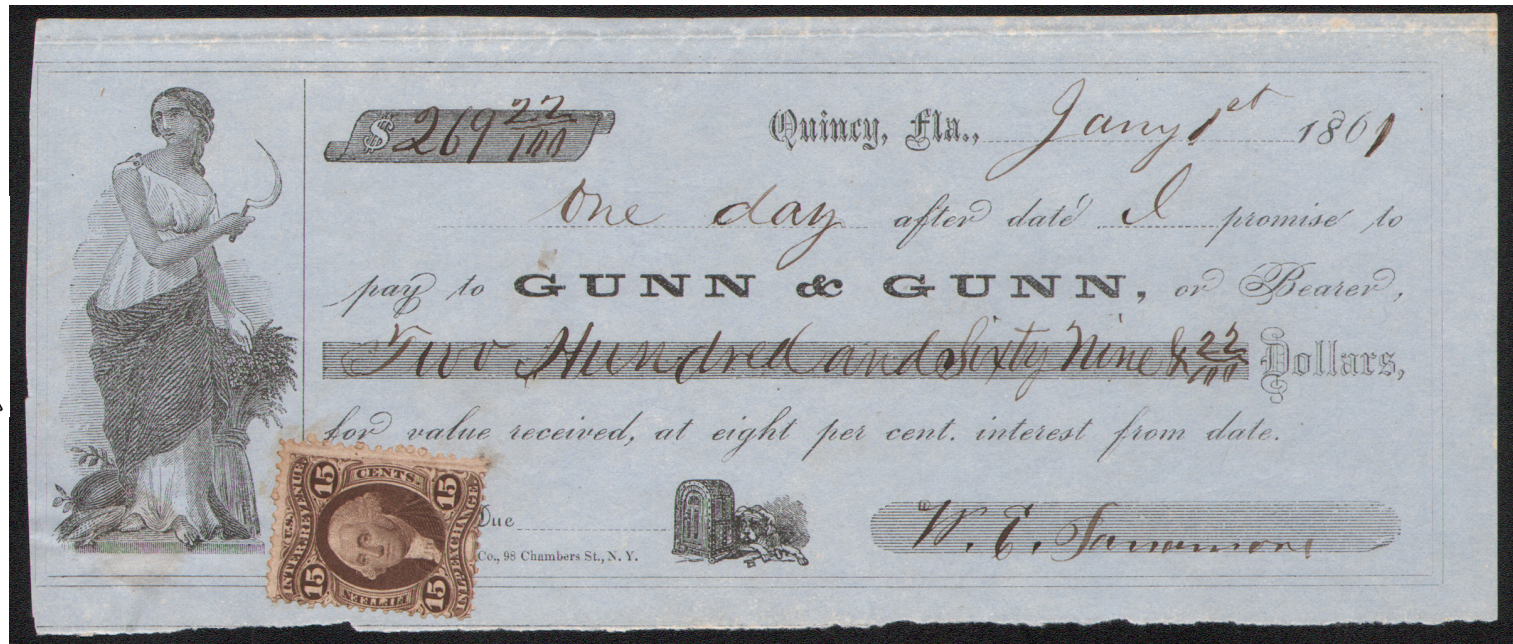 $ 269 22/100
Quincy, Fla., Jany 1st 1861
One day after date I promise to
pay to GUNN & GUNN, or Bearer,
Two Hundred and Sixty Nine & 22/100 Dollars,
for value received, at eight per cent. interest from date.
Due
Co., 98 Chambers St., N. Y.
W. E.
U.S.
INTER. REVENUE
15 CENTS. 15
INLD EXCHANGE.
15 FIFTEEN 15